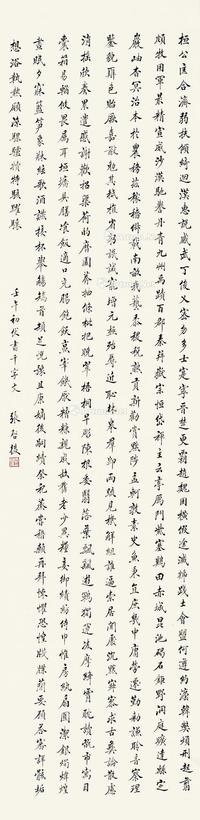 桓公匡合濟弱扶傾綺迴漢惠說感武丁俊乂密勿多士寔寧晉楚更霸趙魏困橫假途滅虢踐土會盟何遵約法韓弊煩刑起翦
頗牧用軍最精宣威沙漠馳譽丹青九州禹跡百郡秦并嶽宗恒岱禪主云亭雁門紫塞雞田赤城昆池碣石鉅野洞庭曠遠緜
巖岫杳冥治本於農務茲稼穡俶載南畝我藝黍稷稅熟貢新勸賞黜陟孟軻敦素史魚秉直庶幾中庸勞謙謹勅聆音察理
鑒貌辨色貽厥嘉猷勉其祗植省躬譏誡寵增抗極殆辱近恥林皋幸即兩疏見機解組誰逼索居閑處沉默寂寥求古尋論散慮
逍遙欣奏累遣慼謝歡招渠荷的歷園莽抽條枇杷晚翠梧桐早彫陳根委翳落葉飄颻遊鵾獨運凌摩絳霄耽讀翫市寓目
囊箱易輶攸畏屬耳垣牆具膳飡飯適口充腸飽飫烹宰飢厭糟糠親戚故舊老少異糧妾御績紡侍巾帷房紈扇圓潔銀燭煒煌
晝眠夕寐藍筍象床絃歌酒讌接杯舉觴矯手頓足悅豫且康嫡後嗣續祭祀烝嘗稽顙再拜悚懼恐惶牋牒簡要顧答審詳骸垢
想浴執熱願涼驢騾犢特駭躍超驤 壬午初伏書千字文 張